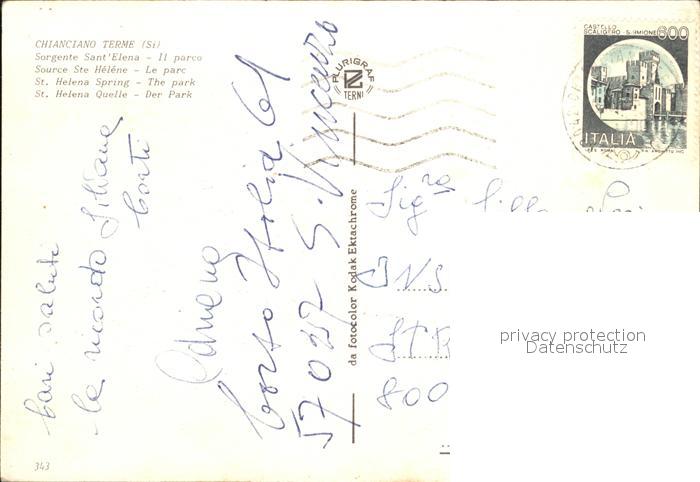 CHIANCIANO TERME (Si)
Sorgente Sant'Elena - Il parco
Source Ste Hélène - Le parc
St. Helena Spring - The park
St. Helena Quelle - Der Park
Cari saluti
la ricordo Liliana
Corti
Adriana
Corso Italia 61
57027 S. Vincenzo
PLURIGRAF
TERNI
da fotocolor Kodak Ektachrome
CASTELLO
SCALIGERO - SIRMIONE
600
ITALIA
Sig.ra
INS
800
privacy protection
Datenschutz
343